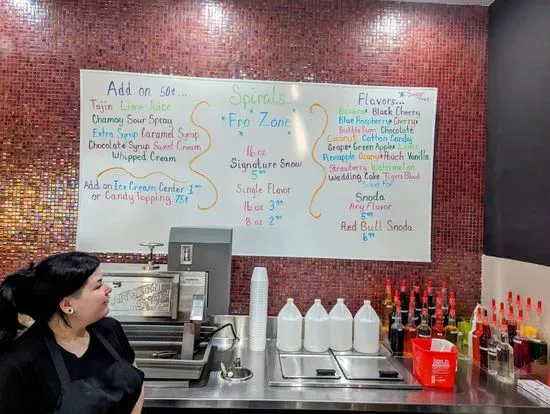 Add on 50¢...
Tajin Lime Juice
Chamoy Sour Spray
Extra Syrup Caramel Syrup
Chocolate Syrup Sweet Cream
Whipped Cream
Add an Ice Cream Center 1.00
or Candy Topping 75¢
Spirals
*Fro Zone*
16 oz
Signature Snow
5.00
Single Flavor
16 oz 3.99
8 oz 2.99
Flavors...
*Sugar Free
Banana* Black Cherry
Blue Raspberry* Cherry*
Bubble Gum Chocolate
Coconut Cotton Candy
Grape* Green Apple* Lime
Pineapple Orange* Peach Vanilla
Strawberry Watermelon
Wedding Cake Tigers Blood
Silver Fox
Snoda
Any Flavor
Red Bull Snoda